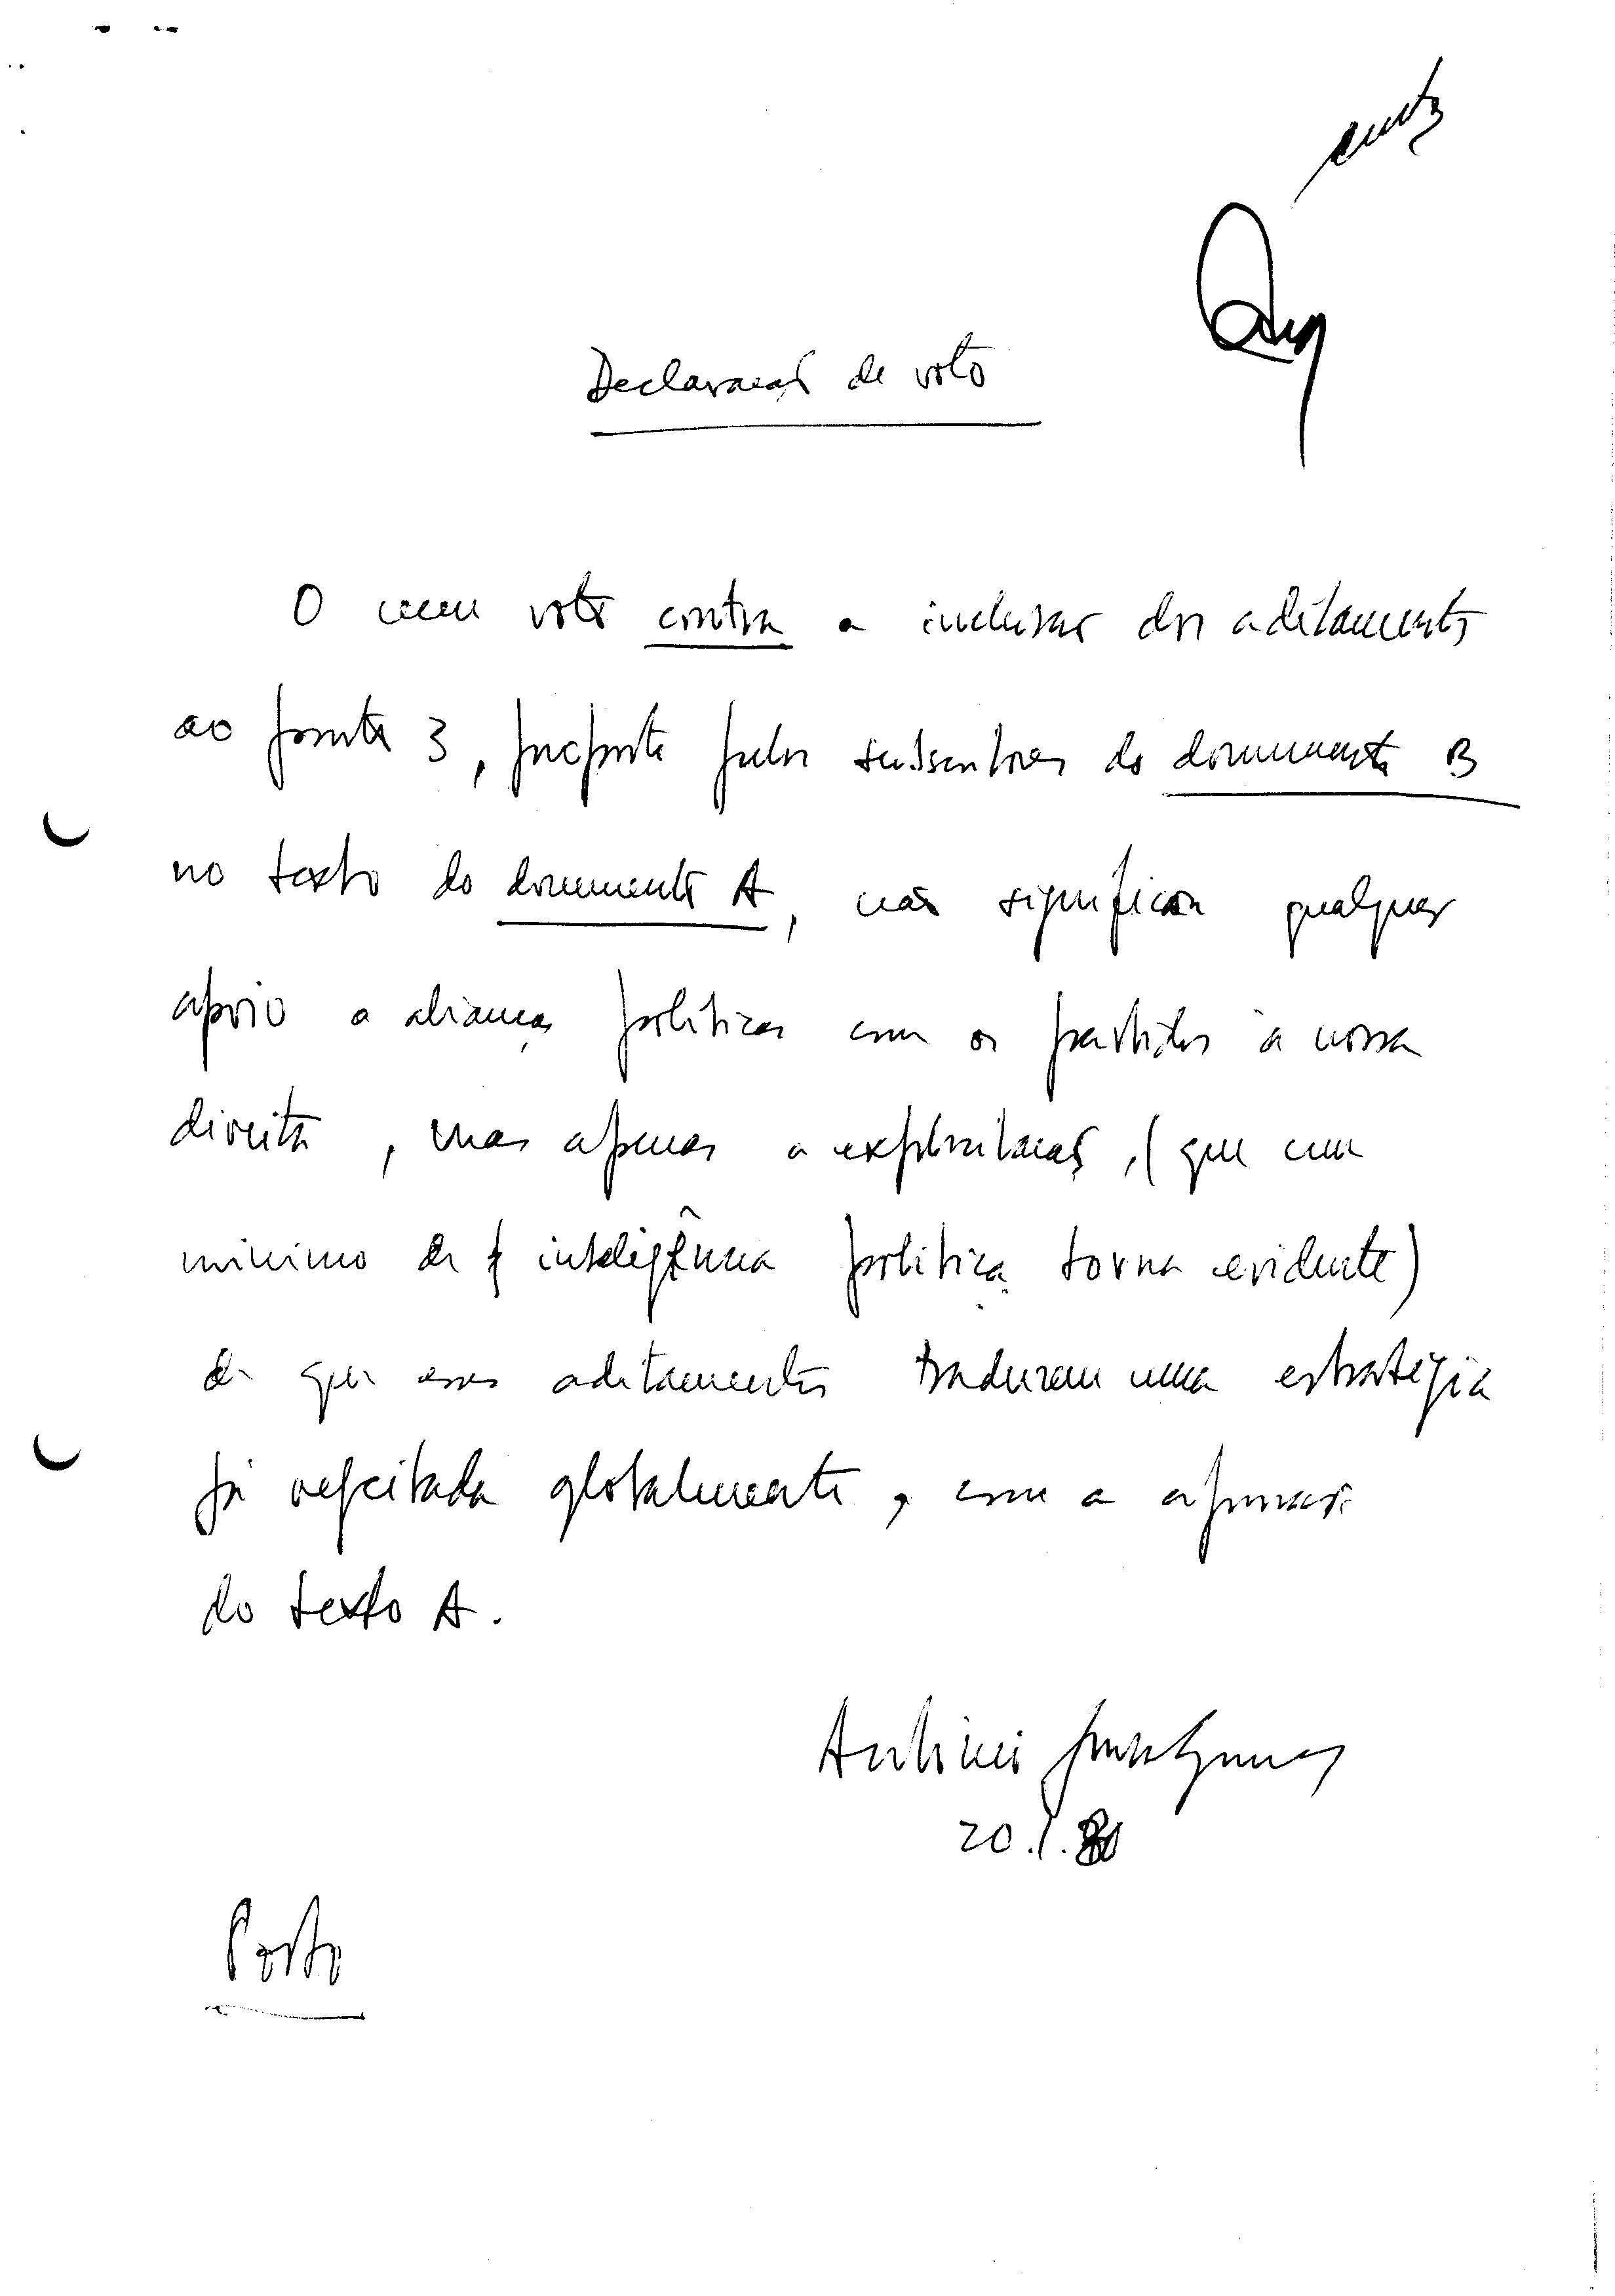 Declaração de voto
O meu voto contra a inclusão dos aditamentos
ao ponto 3, proposto pelos subscritores do documento B
no texto do documento A, não significa qualquer
apoio a alianças políticas com os partidos à nossa
direita, mas apenas a explicitação, (que um
mínimo de inteligência política torna evidente)
de que esses aditamentos traduzem uma estratégia
já rejeitada globalmente, com a aprovação
do texto A.
António
20.1.
Porto